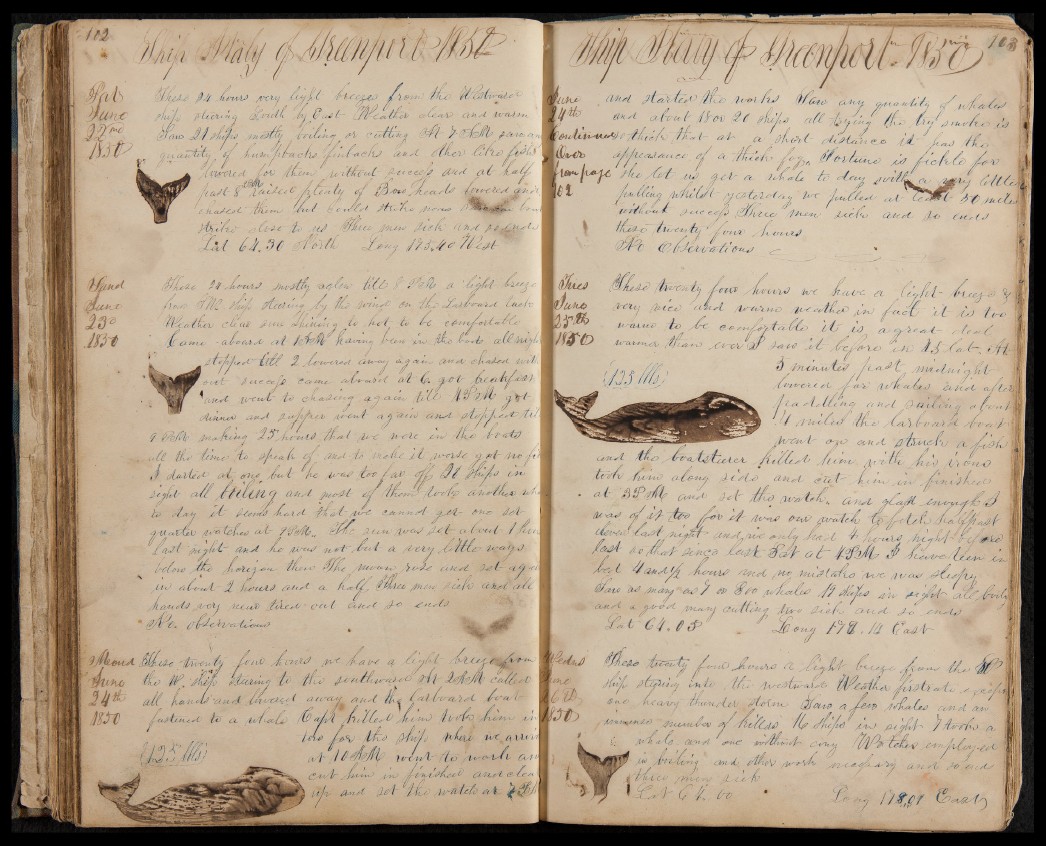 102
Ship Italy of Greenport 1850
Sat
June
22nd
1850
These 24 hours very light breeze from the Westward
ship steering South by East Weather clear and warm
Saw 21 ships mostly boiling or cutting At 7 PM saw
quantity of humpbacks finbacks and other
lowered for them without success and at half
past 8 raised plenty of Bow heads lowered and
chased them but could strike none
strike close to us Three men sick and so ends
Lat 64.30 North Long 173.40 West
Sund
June
23d
1850
These 24 hours mostly a clew till 8 PM a light breeze
from ship steering by the wind on the Larboard tack
Weather clear sun shining to hot to be comfortable
Came aboard at 1 having been in the boats all night
stopped till 2 lowered away again and chased with
out success came aboard at 6 got breakfast
and went to chasing again till 4 PM got
dinner and supper went again and stopped till
making 25 hours that we were in the boats
all the time to speak of and to make it worse got no
I darted at one but he was too far off 21 Ships in
sight all boiling and most of them took another
to day it seems hard that we cannot get one set
quarter watches at The sun was set about 1 hour
last night and he was not but a very little ways
below the horizon then The moon rose and set again
in about 2 hours and a half Three men sick and all
hands very near tired out and so ends
No Observations
Mond
June
24th
1850
These twenty four hours we have a light breeze from
the W. ship steering to the southward At 2 PM called
all hands and lowered away and the larboard boat
fastened to a whale Capt killed him took him in
tow for the ship where we arrived
at 10 went to work and
cut him in finished and clear
up and set the watch at
(125 bbls)
103
Ship Italy of Greenport 1850
June
24th
Continued
Over
from page
102
and started the works Saw any quantity of whales
and about 18 or 20 ships all trying the try smoke is
so thick that at a short distance it has the
appearance of a thick fog Fortune is fickle for
she let us get a whale to day with a very little
pulling whilst yesterday we pulled at least 50 miles
without success Three men sick and so ends
these twenty four hours
No Observations
Tues
June
25th
1850
These twenty four hours we have a light breeze &
very nice and warm weather in fact it is too
warm to be comfortable it is a great deal
warmer than ever I saw it before in lat. At
5 minutes past midnight
lowered for whales and after
paddling and sailing about
4 miles the larboard boat
went on and struck a fish
and the boatsteerer killed him with his irons
took him along side and cut him in finished
at 3 PM and set the watch and glad enough I
was of it too for it was our watch to
last night and we only had 4 hours night before
last so that since last Sat at 4 PM I have been in
bed 4 and 1/2 hours and no mistake we was sleepy
Saw as many as 7 or 800 whales 17 ships in sight all boiling
and a good many cutting two sick and so ends
Lat 64.05 Long 178.14 East
(125 bbls)
Wednes
June
26th
1850
These twenty four hours a light breeze from the
ship steering into the westward Weather firstrate
one heavy thunder storm Saw a few whales and an
immense number of killers 16 Ships in sight 7 took a
whale and one without any Watches employed
in boiling and other work necessary and so ends
three men sick
Lat 64.00 Long 178.01 East